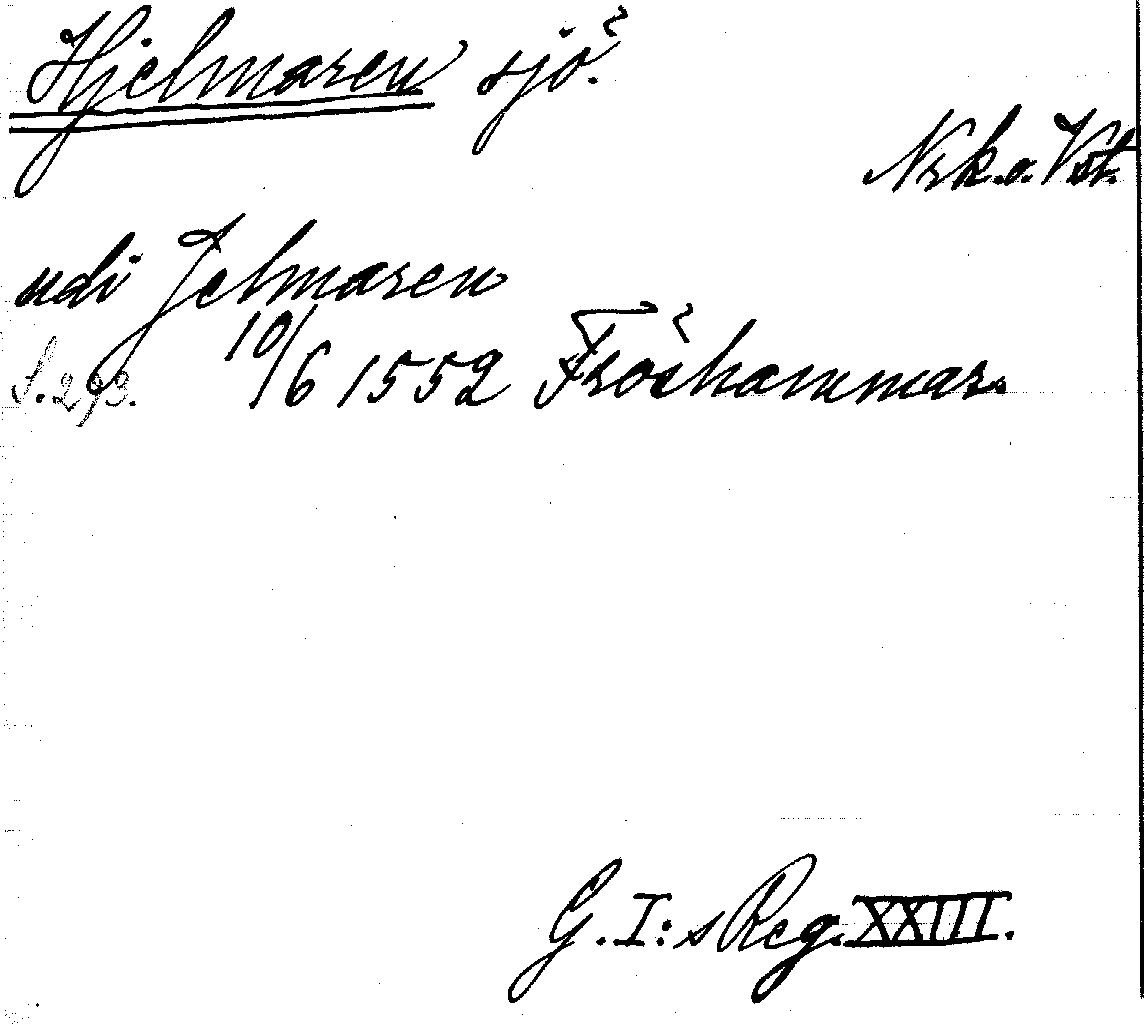 Hjelmaren sjö.
Nrk. o. Vst.
udi Jelmaren
S. 293. 10/6 1552 Fröshammar.
G. I:s Reg. XXIII.